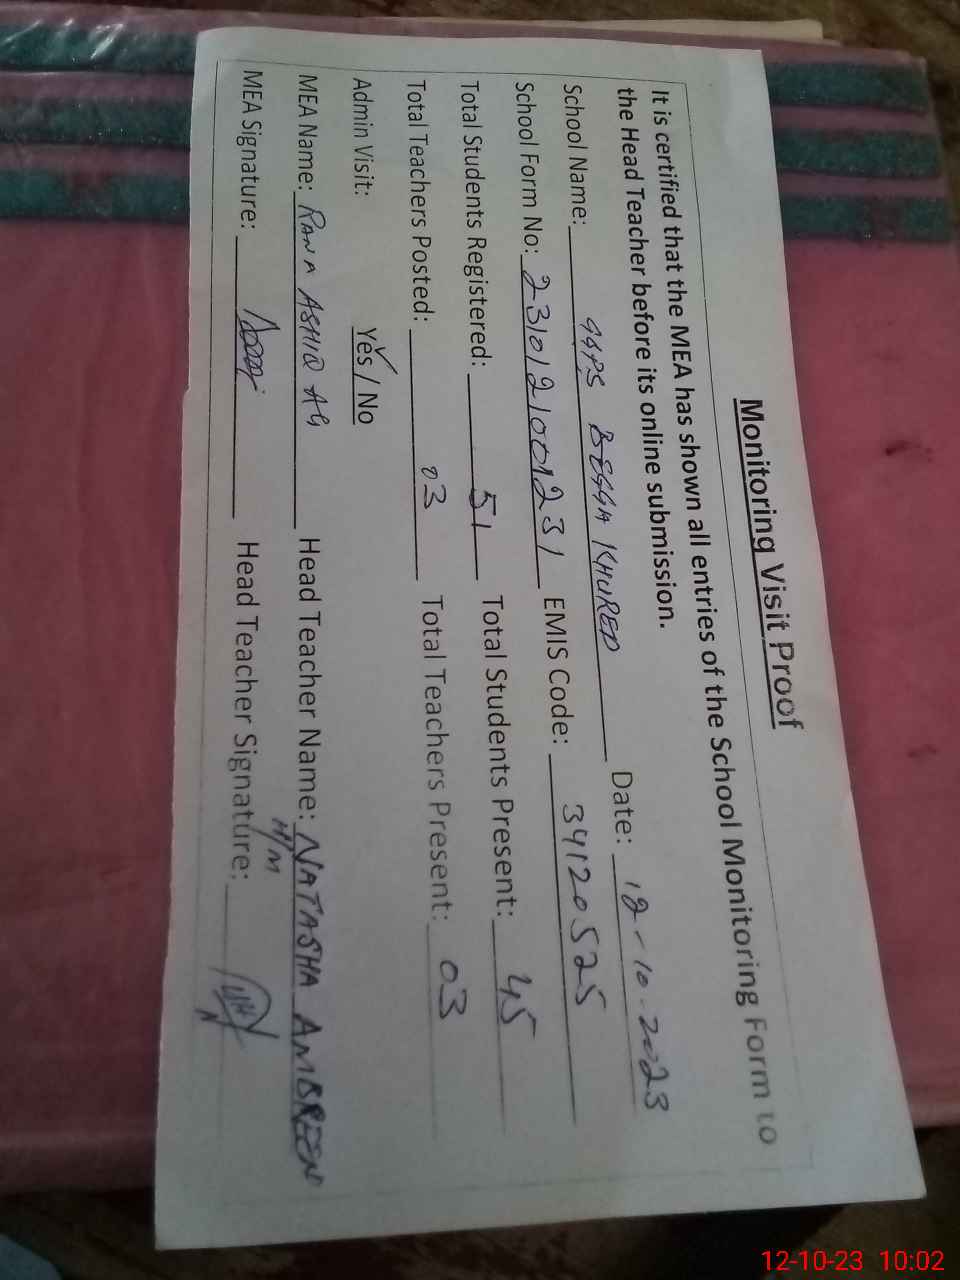 Monitoring Visit Proof
It is certified that the MEA has shown all entries of the School Monitoring Form to
the Head Teacher before its online submission.
School Name: GGPS BEGGA KHURED Date: 12-10-2023
School Form No: 2310121001231 EMIS Code: 34120525
Total Students Registered: 51 Total Students Present: 45
Total Teachers Posted: 03 Total Teachers Present: 03
Admin Visit: Yes / No
MEA Name: RANA ASHIQ Head Teacher Name: NATASHA AMBREEN
H/M
MEA Signature: Head Teacher Signature:
12-10-23 10:02